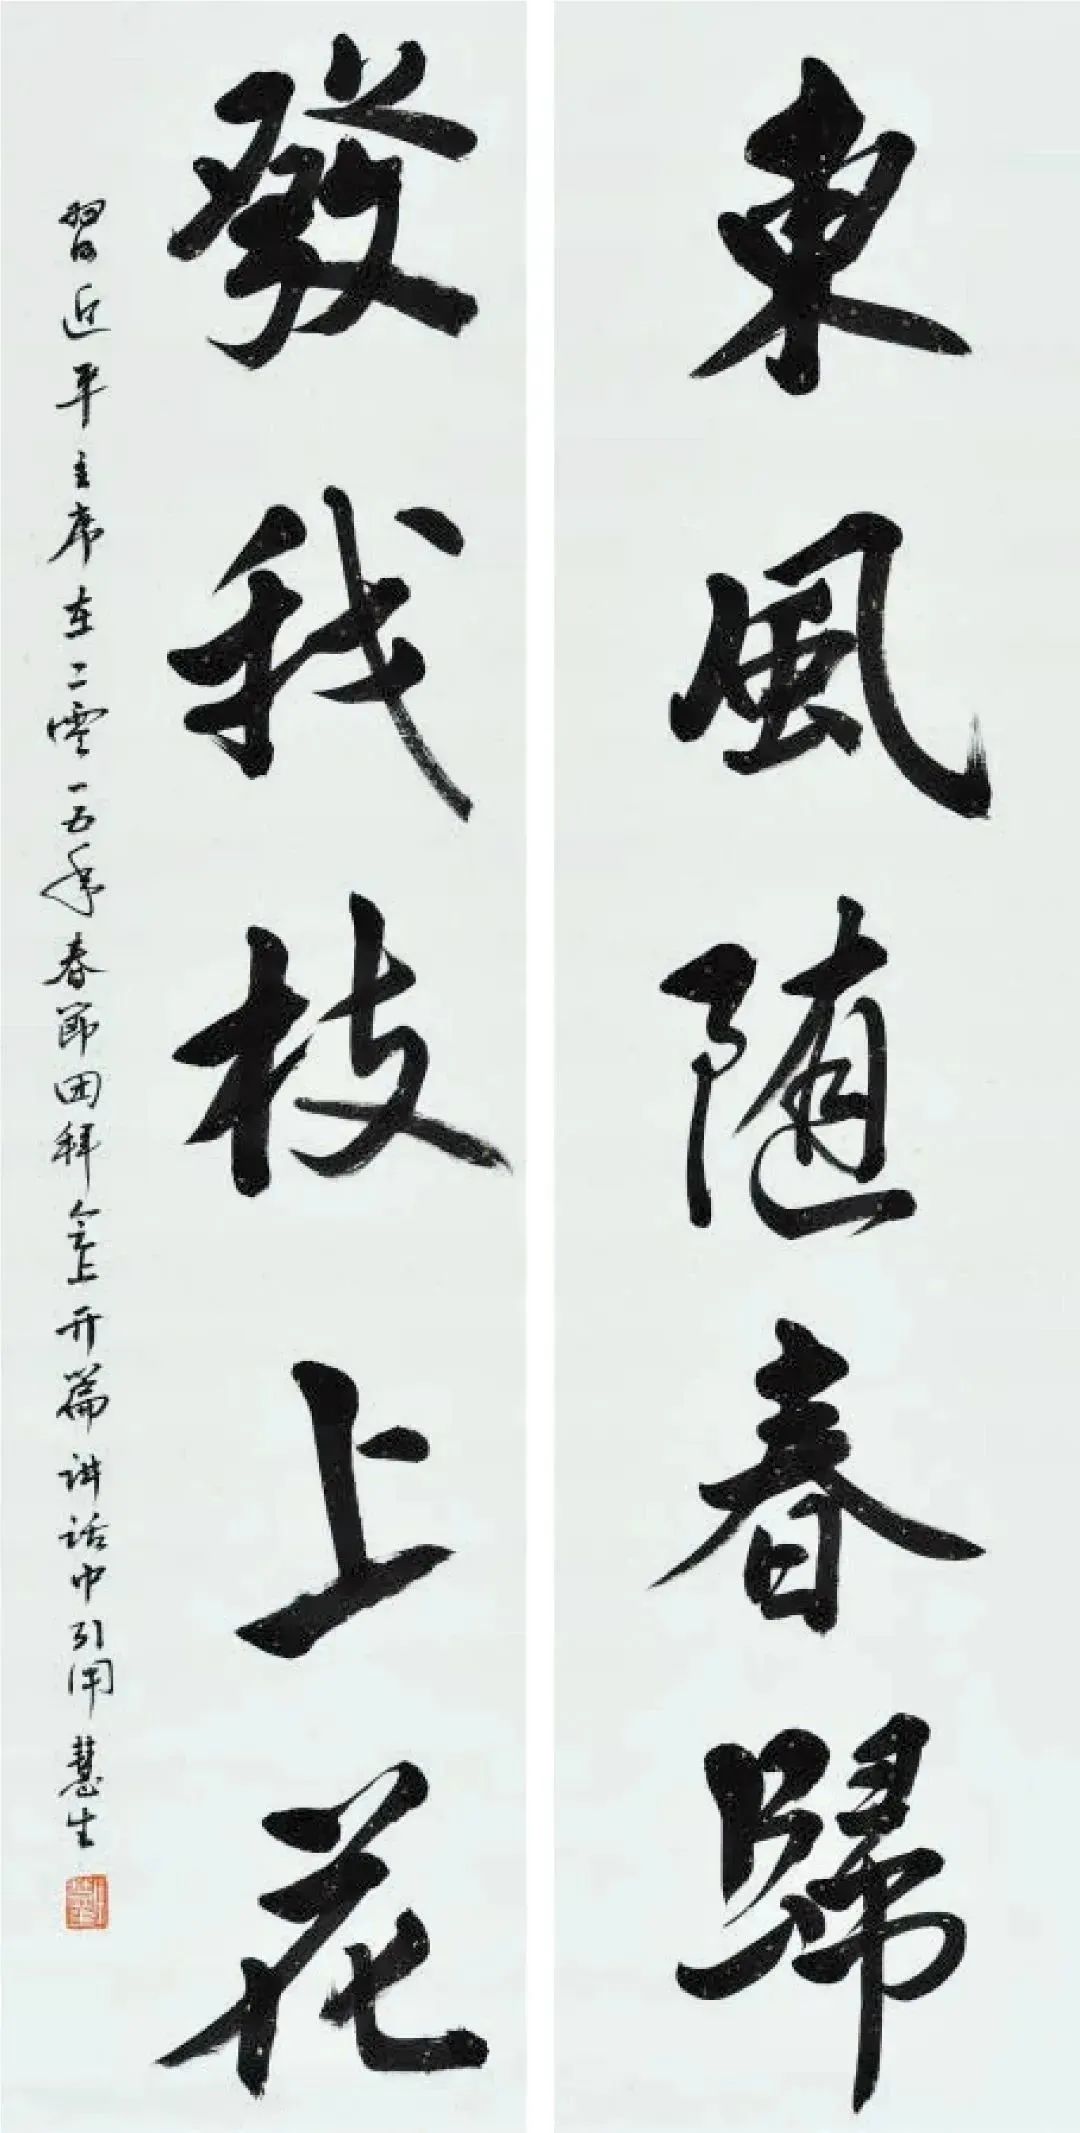 東風随春歸
發我枝上花
習近平主席在二零一五年春節团拜会上开篇讲话中引用 慧生